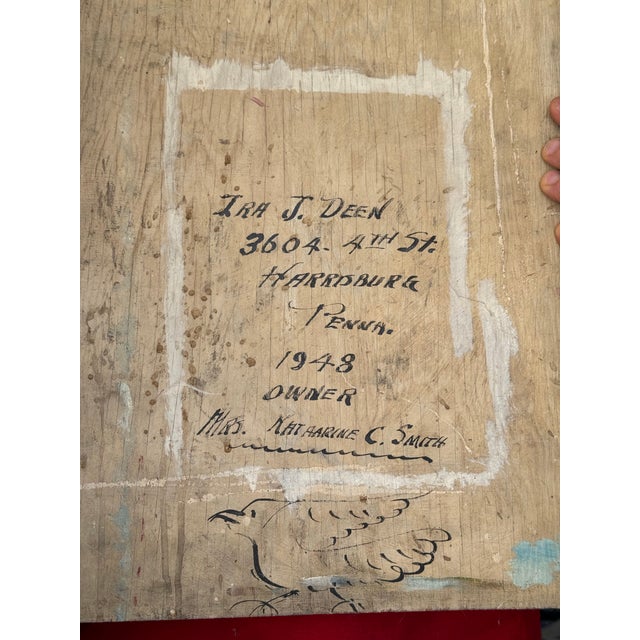 IRA J. DEEN
3604- 4TH ST.
HARRISBURG
PENNA.
1948
OWNER
MRS. KATHARINE C. SMITH